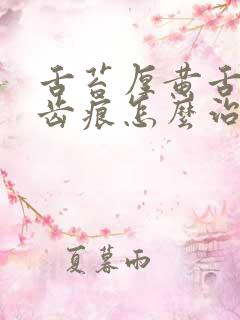 舌苔厚黄舌
齿痕怎麼治
夏暮雨